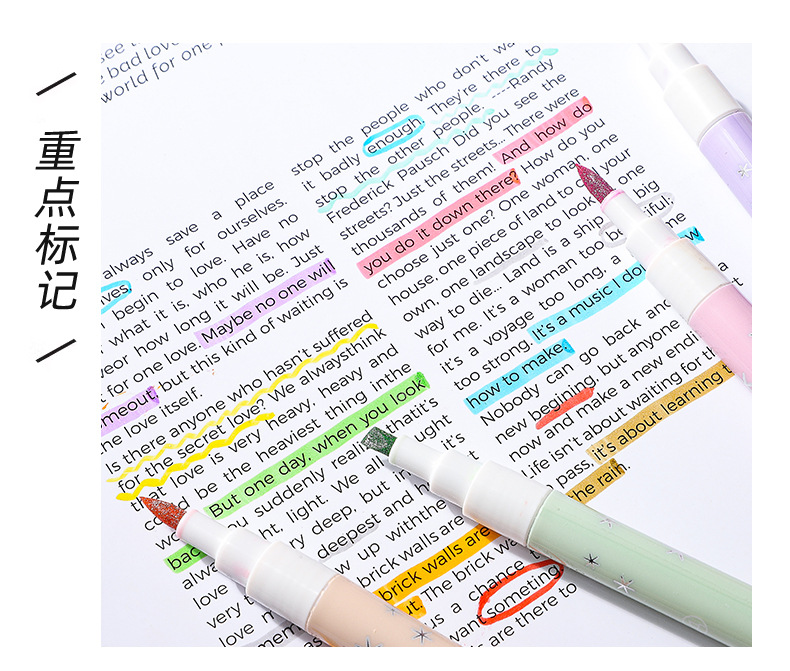 重点标记
see t
bad love
world for one
always save a place
only for ourselves.
begin to love. Have no
what it is, who he is, how
how long it will be. Just
for one love. Maybe no one will
but this kind of waiting is
love itself.
Is there anyone who hasn't suffered
for the secret love? We alwaysthink
that love is very heavy, heavy and
be the heaviest thing inthe
But one day, when you look
suddenly thatit's
light. We all
love deep, but in it's
very deepest and
love up withthe
brick walls are
stop the people who don't
it badly enough. They're there to
stop the other people. ----Randy
Frederick Pausch Did you see the
streets? Just the streets... There were
thousands of them! And how do
you do it down there? How do you
choose just one? One woman, one
house, one piece of land to your
own, one landscape to look one
way to die... Land is a ship big
for me. It's a woman too
it's a voyage too long, a
too strong. It's a music I
how to make.
Nobody can go back and a
new begining, but anyone
now and make a new
Life isn't about waiting for
pass, it's about learning
the rain.
brick walls are
The brick
us a chance
want someting
are there to